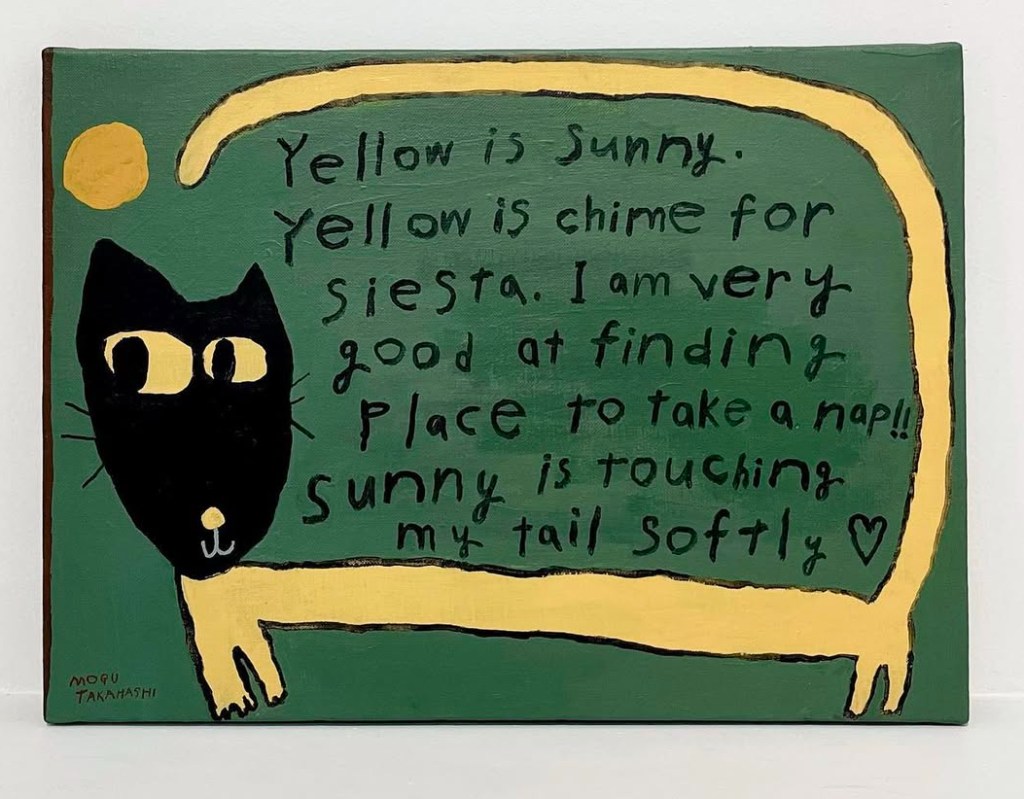 Yellow is Sunny.
Yellow is chime for
siesta. I am very
good at finding
place to take a nap!!
Sunny is touching
my tail softly ♡
MOGU
TAKAHASHI